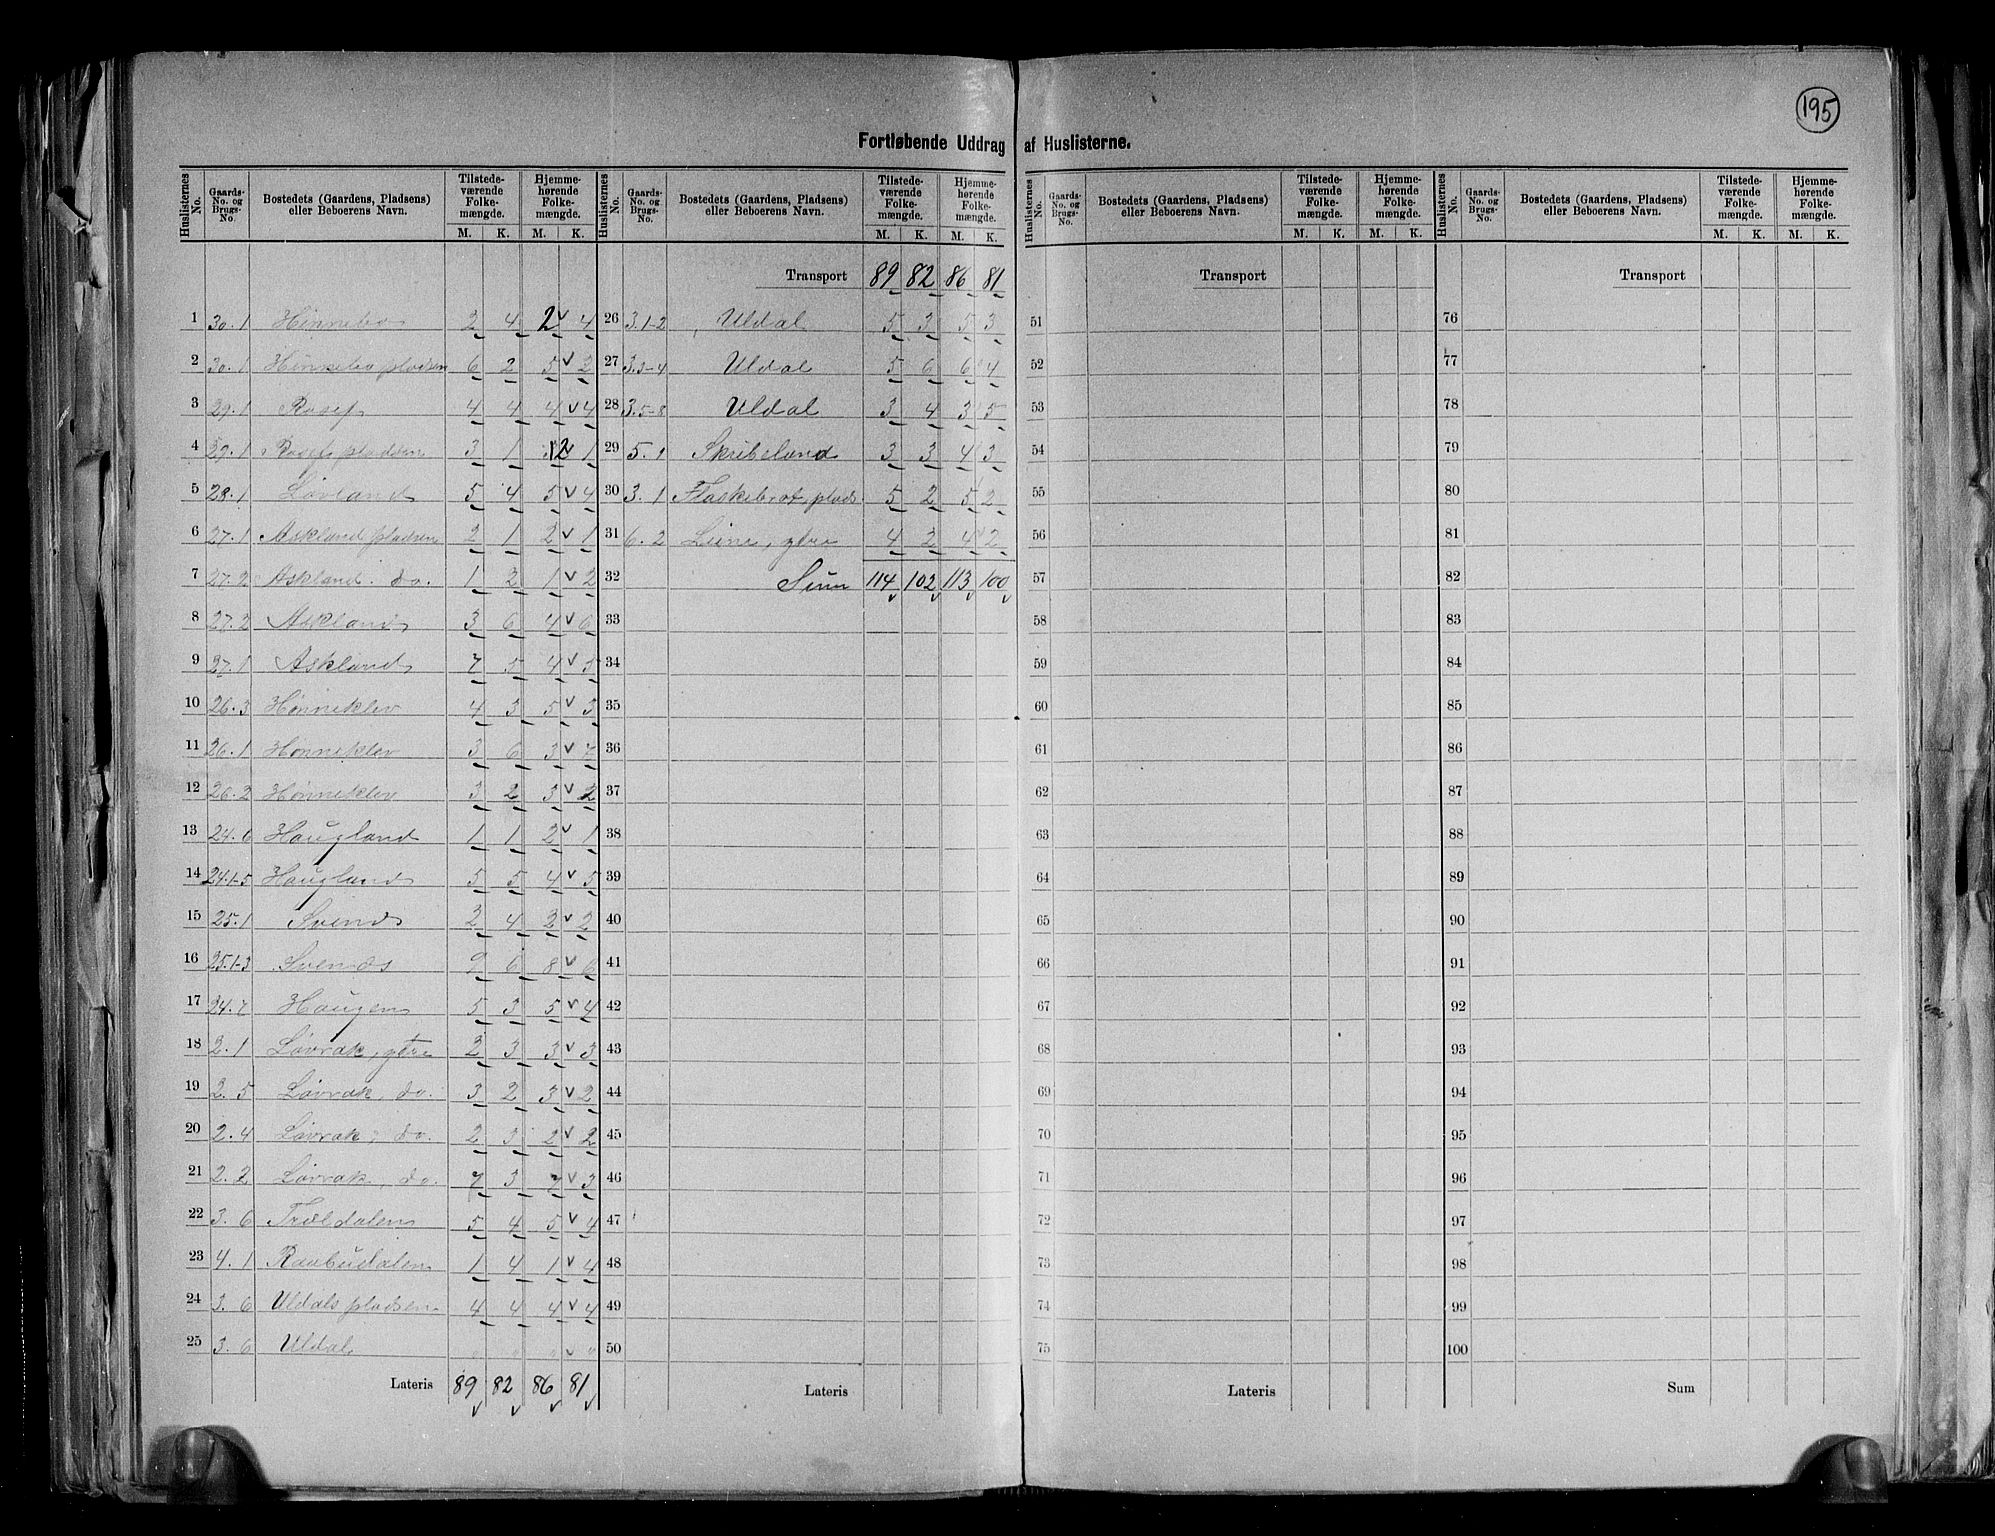 195
Fortløbende Uddrag af Huslisterne.
Huslisternes No. | Gaards-No. og Brugs-No. | Bostedets (Gaardens, Pladsens) eller Beboerens Navn. | Tilstedeværende Folkemængde. M. K. | Hjemmehørende Folkemængde. M. K.
1 30.1 Hinnebo 2 4 2 4
2 30.1 Hinnebo pladsen 6 2 5 2
3 29.1 Rosef 4 4 4 4
4 29.1 Rosefs pladsen 3 1 2 1
5 28.1 Løvland 5 4 5 4
6 27.1 Askland pladsen 2 1 2 1
7 27.2 Askland do. 1 2 1 2
8 27.2 Askland 3 6 4 6
9 27.1 Askland 7 5 4 5
10 26.3 Hønneklev 4 3 5 3
11 26.1 Hønneklev 3 6 3 7
12 26.2 Hønneklev 3 2 3 2
13 24.6 Haugland 1 1 2 1
14 24.1-5 Haugland 5 5 4 5
15 25.1 Svenæs 2 4 2 2
16 25.1-3 Svenæs 9 6 8 6
17 24.7 Haugen 5 3 5 4
18 2.1 Løvrak, ytre 2 3 3 3
19 2.5 Løvrak, do. 3 2 3 2
20 2.4 Løvrak, do. 2 3 2 2
21 2.2 Løvrak, do. 7 3 7 3
22 3.6 Troldalen 5 4 5 4
23 4.1 Raubudalen 1 4 1 4
24 3.6 Uldals pladsen 4 4 4 4
25 3.6 Uldal " " " "
Lateris 89 82 86 81
Transport 89 82 86 81
26 3.1-2 Uldal 5 3 5 3
27 3.3-4 Uldal 5 6 6 4
28 3.5-8 Uldal 3 4 3 5
29 5.1 Skribeland 3 3 4 3
30 3.1 Flaskebrot, plads 5 2 5 2
31 6.2 Leine, ytre 4 2 4 2
32 Sum 114 102 113 100
33
34
35
36
37
38
39
40
41
42
43
44
45
46
47
48
49
50
Lateris
Huslisternes No. | Gaards-No. og Brugs-No. | Bostedets (Gaardens, Pladsens) eller Beboerens Navn. | Tilstedeværende Folkemængde. M. K. | Hjemmehørende Folkemængde. M. K.
Transport
51
52
53
54
55
56
57
58
59
60
61
62
63
64
65
66
67
68
69
70
71
72
73
74
75
Lateris
Transport
76
77
78
79
80
81
82
83
84
85
86
87
88
89
90
91
92
93
94
95
96
97
98
99
100
Sum